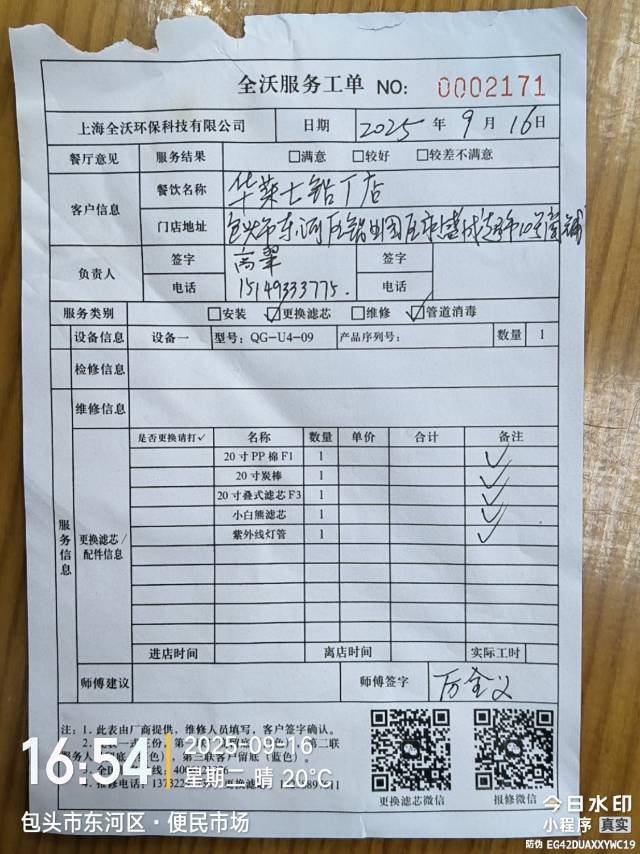 全沃服务工单 NO: 0002171
上海全沃环保科技有限公司 日期 2025 年 9 月 16 日
餐厅意见 服务结果 □满意 □较好 □较差不满意
客户信息 餐饮名称 华莱士铝厂店
门店地址 包头市东河区铝业
负责人 签字 高翠 签字
电话 15149333775. 电话
服务类别 □安装 ☑更换滤芯 □维修 ☑管道消毒
设备信息 设备一 型号: QG-U4-09 产品序列号: 数量 1
检修信息
维修信息
服务信息
更换滤芯/配件信息
是否更换请打✓ 名称 数量 单价 合计 备注
20寸PP棉F1 1 ✓
20寸炭棒 1 ✓
20寸叠式滤芯F3 1 ✓
小白熊滤芯 1 ✓
紫外线灯管 1 ✓
进店时间 离店时间 实际工时
师傅建议 师傅签字
注: 1. 此表由厂商提供, 维修人员填写, 客户签字确认。
更换滤芯微信 报修微信
16:54 2025-09-16
星期二 晴 20℃
包头市东河区·便民市场
今日水印
小程序 真实
防伪 EG42DUAXXYWC19